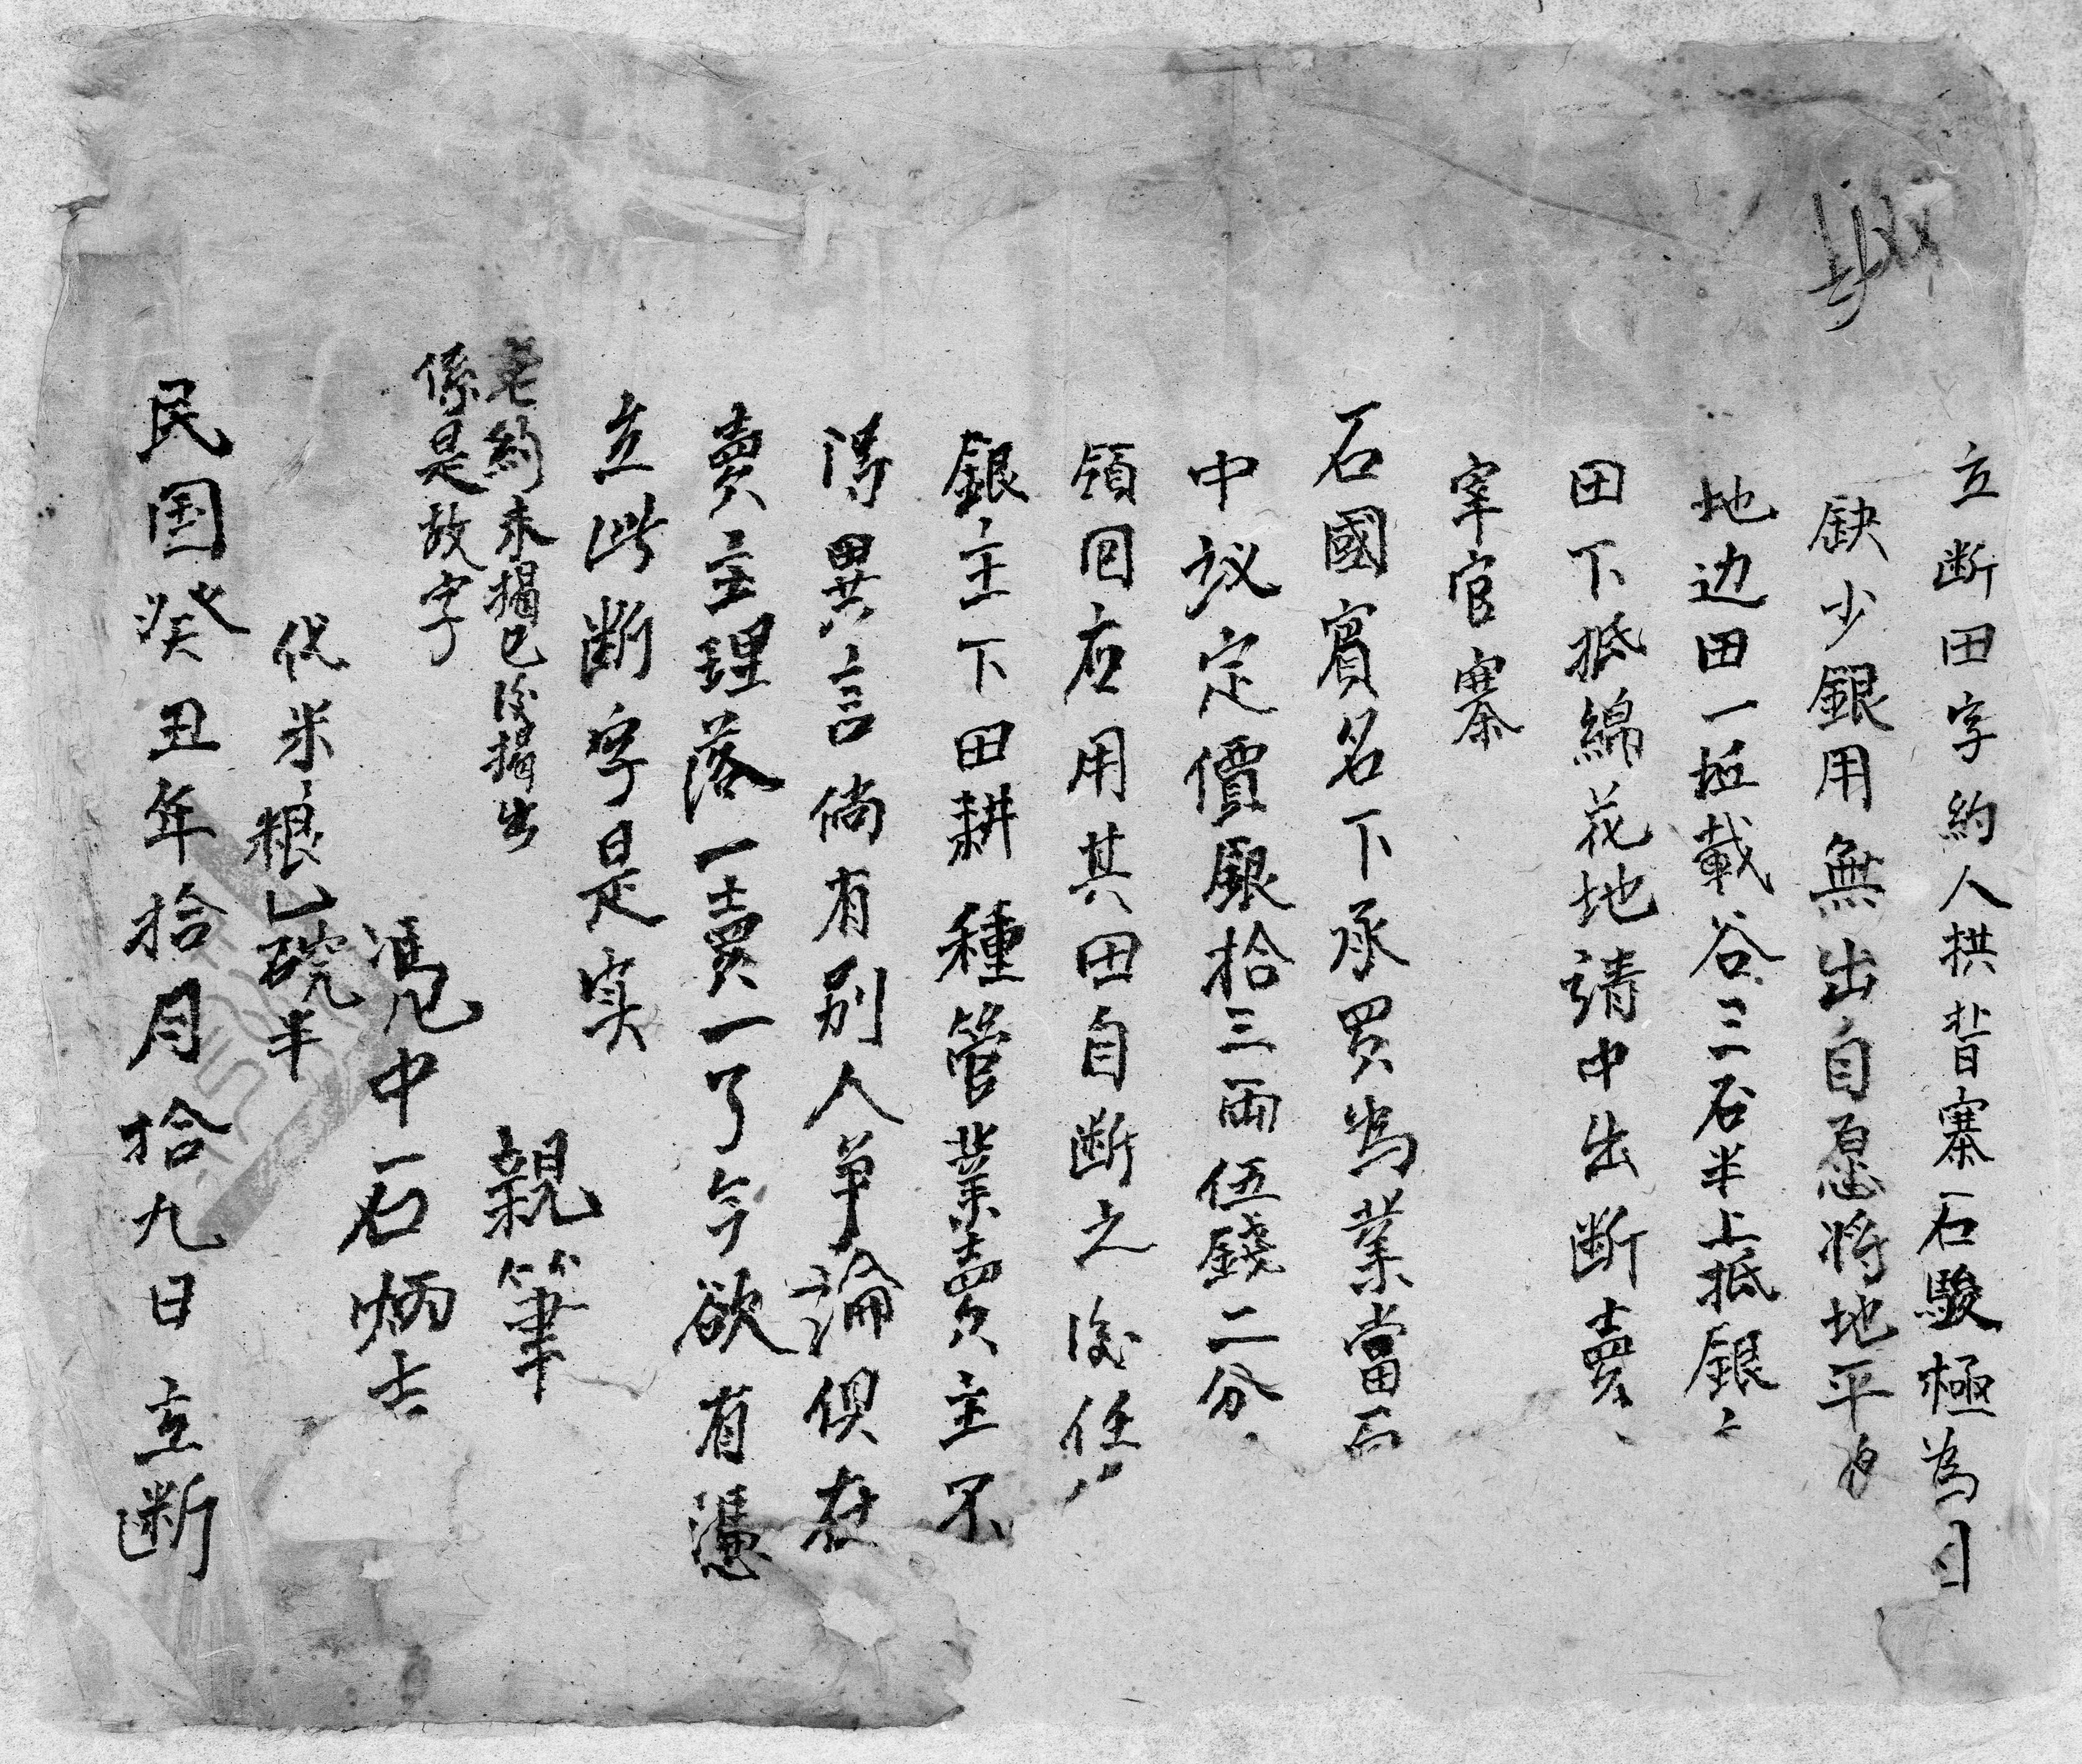 立断田字約人拱背寨石駿極為因
缺少銀用無出自愿将地平
地边田一坵載谷三石半上抵銀
田下抵綿花地請中出断賣
宰官寨
石國賓名下承買为業當面
中议定價銀拾三両伍錢二分
領囬应用其田自断之後任
銀主下田耕種管業賣主不
淂異言倘有别人争論俱在
賣主理落一賣一了今欲有憑
立此断字是实
老約未揭已後揭出
係是故字
親筆
馮中石炳吉
代米粮乚碗半
民国癸丑年拾月拾九日立断